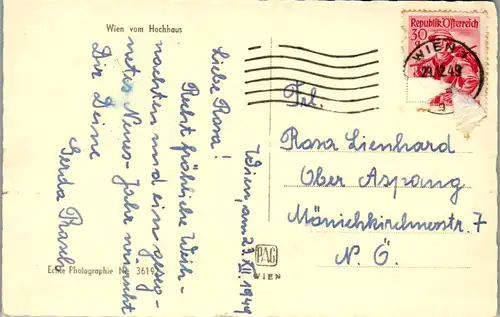 Wien vom Hochhaus
Wien, am 23. XII. 1949
Liebe Rosa!
Recht fröhliche Weih-
nachten und ein geseg-
netes Neues-Jahr wünscht
Dir Deine
Gerda
Echte Photographie Nr. 3619
PAG
WIEN
Republik Österreich
30
WIEN
23.XII.49
9
Frl.
Rosa Lienhard
Ober Aspang
Mönichkirchnerstr. 7
N. Ö.